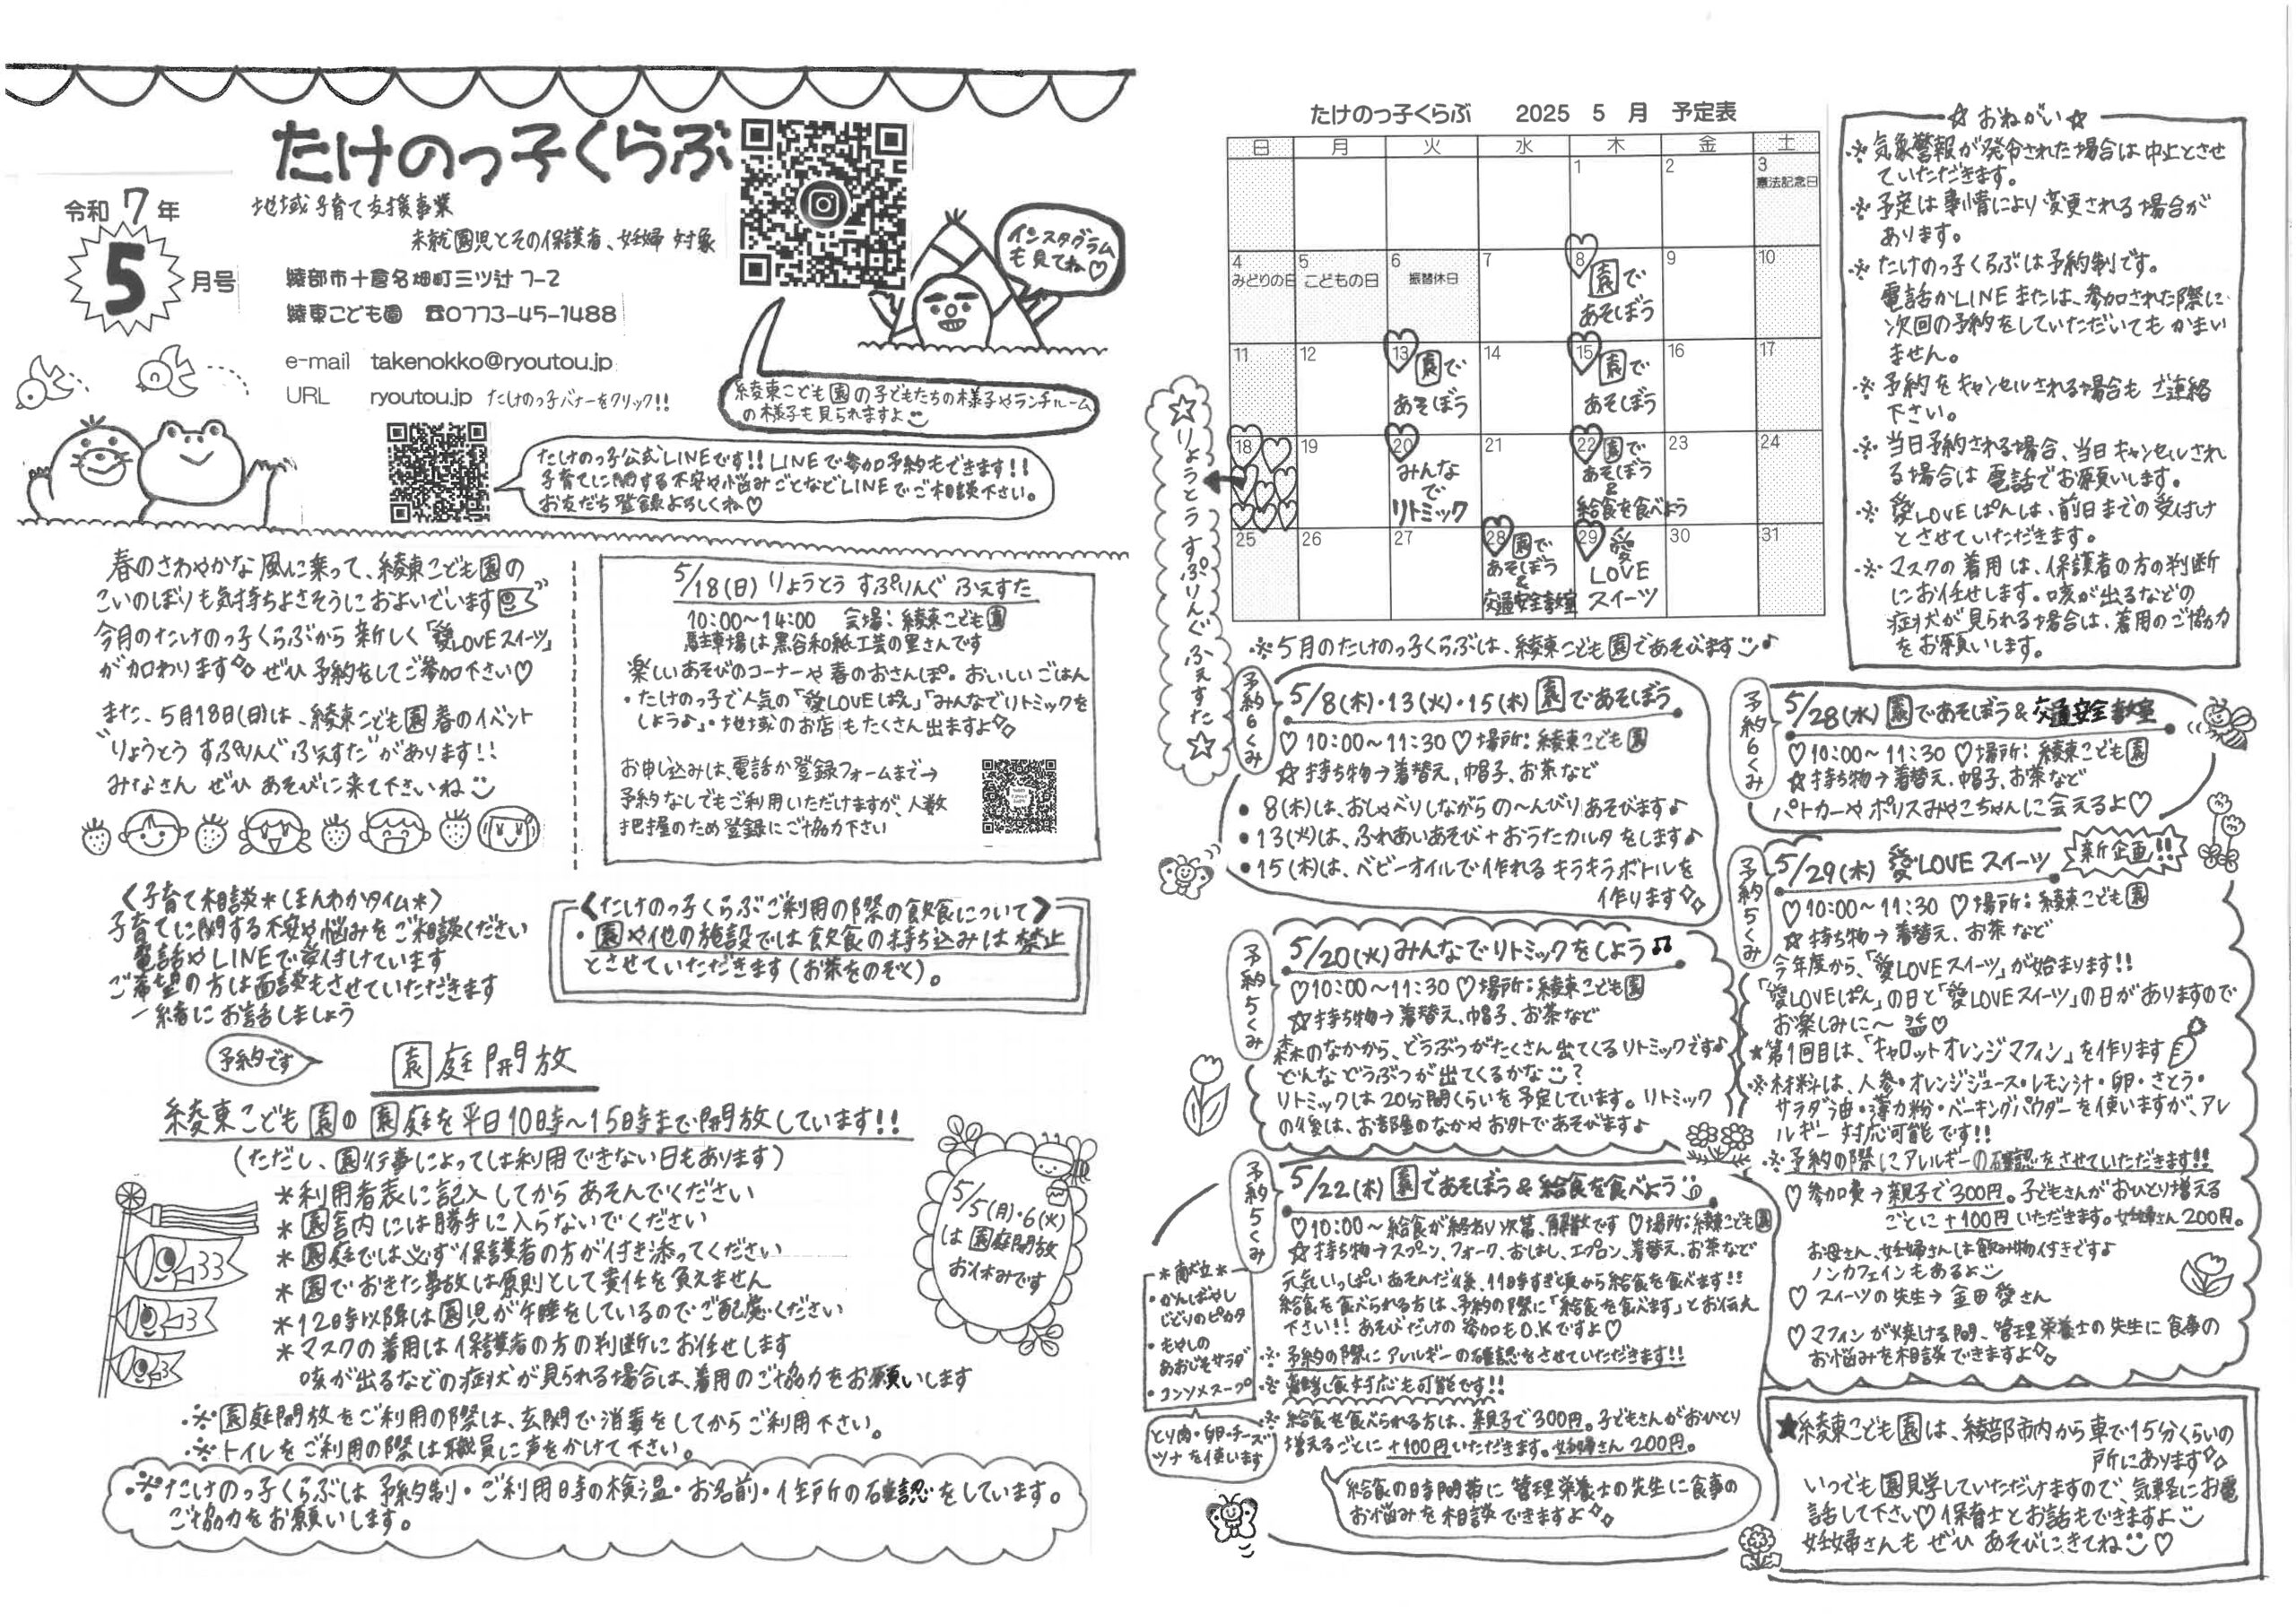 たけのっ子くらぶ
令和7年
5
月号
地域子育て支援事業
未就園児とその保護者、妊婦対象
綾部市十倉名畑町三ツ辻7-2
綾東こども園 ☎0773-45-1488
e-mail takenokko@ryoutou.jp
URL ryoutou.jp たけのっ子バナーをクリック!!
インスタグラム
も見てね♡
綾東こども園の子どもたちの様子やランチルーム
の様子も見られますよ
たけのっ子公式LINEです!!LINEで参加予約もできます!!
子育てに関する不安や悩みごとなどLINEでご相談下さい。
お友だち登録よろしくね♡
春のさわやかな風に乗って、綾東こども園の
こいのぼりも気持ちよさそうにおよいでいます
今月のたけのっ子くらぶから新しく「愛LOVEスイーツ」
が加わります ぜひ予約をしてご参加下さい♡
また、5月18日(日)は、綾東こども園春のイベント
"りょうとう すぷりんぐ ふぇすた"があります!!
みなさん ぜひ あそびに来て下さいね
5/18(日) りょうとう すぷりんぐ ふぇすた
10:00〜14:00 会場:綾東こども園
駐車場は黒谷和紙工芸の里さんです
楽しいあそびのコーナーや春のおさんぽ・おいしいごはん
・たけのっ子で人気の「愛LOVEぱん」「みんなでリトミックを
しよう♪」・地域のお店もたくさん出ますよ
お申し込みは、電話か登録フォームまで→
予約なしでもご利用いただけますが、人数
把握のため登録にご協力下さい
〈子育て相談*ほんわかタイム*〉
子育てに関する不安や悩みをご相談ください
電話やLINEで受付けています
ご希望の方は面談もさせていただきます
一緒にお話しましょう
〈たけのっ子くらぶご利用の際の飲食について〉
・園や他の施設では飲食の持ち込みは禁止
とさせていただきます(お茶をのぞく)。
予約です
園庭開放
綾東こども園の園庭を平日10時〜15時まで開放しています!!
(ただし、園行事によっては利用できない日もあります)
*利用者表に記入してからあそんでください
*園舎内には勝手に入らないでください
*園庭では必ず保護者の方が付き添ってください
*園でおきた事故は原則として責任を負えません
*12時以降は園児が午睡をしているのでご配慮ください
*マスクの着用は保護者の方の判断にお任せします
咳が出るなどの症状が見られる場合は、着用のご協力をお願いします
5/5(月)・6(火)
は園庭開放
お休みです
※園庭開放をご利用の際は、玄関で消毒をしてからご利用下さい。
※トイレをご利用の際は職員に声をかけて下さい。
※たけのっ子くらぶは予約制・ご利用時の検温・お名前・住所の確認をしています。
ご協力をお願いします。
たけのっ子くらぶ 2025 5 月 予定表
日 月 火 水 木 金 土
1 2 3
憲法記念日
4 5 6 7 8 9 10
みどりの日 こどもの日 振替休日 園で
あそぼう
11 12 13 14 15 16 17
園で 園で
あそぼう あそぼう
18 19 20 21 22 23 24
みんな
で
リトミック
園で
あそぼう
&
給食を食べよう
25 26 27 28 29 30 31
園で
あそぼう
&
交通安全教室
愛
LOVE
スイーツ
☆りょうとうすぷりんぐふぇすた☆
※5月のたけのっ子くらぶは、綾東こども園であそびます♪
☆おねがい☆
※気象警報が発令された場合は中止とさせ
ていただきます。
※予定は事情により変更される場合が
あります。
※たけのっ子くらぶは予約制です。
電話かLINEまたは、参加された際に
次回の予約をしていただいてもかまい
ません。
※予約をキャンセルされる場合もご連絡
下さい。
※当日予約される場合、当日キャンセルされ
る場合は電話でお願いします。
※愛LOVEぱんは、前日までの受付け
とさせていただきます。
※マスクの着用は、保護者の方の判断
にお任せします。咳が出るなどの
症状が見られる場合は、着用のご協力
をお願いします。
予約6くみ
5/8(木)・13(火)・15(木) 園であそぼう
♡10:00〜11:30 ♡場所:綾東こども園
☆持ち物→着替え、帽子、お茶など
●8(木)は、おしゃべりしながらの〜んびりあそびます♪
●13(火)は、ふれあいあそび+おうたカルタをします♪
●15(木)は、ベビーオイルで作れるキラキラボトルを
作ります
予約5くみ
5/20(火)みんなでリトミックをしよう♫
♡10:00〜11:30 ♡場所:綾東こども園
☆持ち物→着替え、帽子、お茶など
森のなかから、どうぶつがたくさん出てくるリトミックです♪
どんなどうぶつが出てくるかな?
リトミックは20分間くらいを予定しています。リトミック
の後は、お部屋のなかやお外であそびますよ♪
予約5くみ
5/22(木) 園であそぼう&給食を食べよう
♡10:00〜給食が終わり次第、解散です ♡場所:綾東こども園
☆持ち物→スプン、フォーク、おはし、エプロン、着替え、お茶など
元気いっぱいあそんだ後、11時すぎ頃から給食を食べます!!
給食を食べられる方は、予約の際に「給食を食べます」とお伝え
下さい!!あそびだけの参加もO.Kですよ♡
※予約の際にアレルギーの確認をさせていただきます!!
※離乳食対応も可能です!!
※給食を食べられる方は、親子で300円。子どもさんがおひとり
増えるごとに+100円いただきます。妊婦さん200円。
給食の時間帯に管理栄養士の先生に食事の
お悩みを相談できますよ
*献立*
・かんばやし
じどりのピカタ
・もやしの
あおじそサラダ
・コンソメスープ
とり肉・卵・チーズ
ツナを使います
予約6くみ
5/28(水) 園であそぼう&交通安全教室
♡10:00〜11:30 ♡場所:綾東こども園
☆持ち物→着替え、帽子、お茶など
パトカーやポリスみやこちゃんに会えるよ♡
予約5くみ
5/29(木) 愛LOVEスイーツ
新企画!!
♡10:00〜11:30 ♡場所:綾東こども園
☆持ち物→着替え、お茶など
今年度から、「愛LOVEスイーツ」が始まります!!
「愛LOVEぱん」の日と「愛LOVEスイーツ」の日がありますので
お楽しみに〜♡
★第1回目は、「キャロットオレンジマフィン」を作ります
※材料は、人参・オレンジジュース・レモン汁・卵・さとう・
サラダ油・薄力粉・ベーキングパウダーを使いますが、アレ
ルギー対応可能です!!
※予約の際にアレルギーの確認をさせていただきます!!
♡参加費→親子で300円。子どもさんがおひとり増える
ごとに+100円いただきます。妊婦さん200円。
お母さん、妊婦さんは飲み物付きですよ
ノンカフェインもあるよ
♡スイーツの先生→金田愛さん
♡マフィンが焼ける間、管理栄養士の先生に食事の
お悩みを相談できますよ
★綾東こども園は、綾部市内から車で15分くらいの
所にあります
いつでも園見学していただけますので、気軽にお電
話して下さい♡保育士とお話もできますよ
妊婦さんもぜひあそびにきてね♡